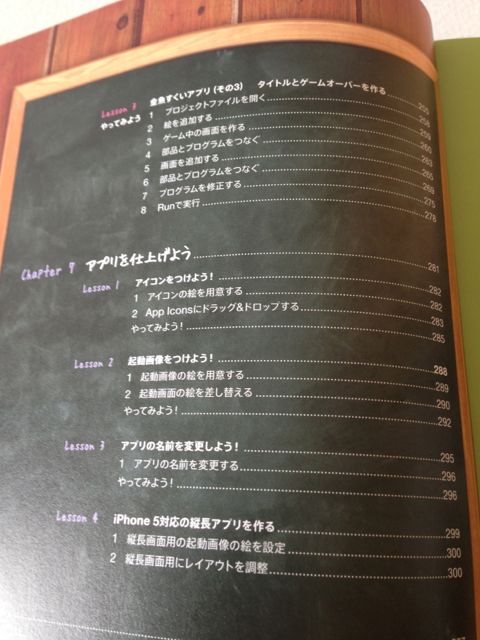 Lesson 3 金魚すくいアプリ(その3) タイトルとゲームオーバーを作る 255
やってみよう 1 プロジェクトファイルを開く 258
2 絵を追加する 258
3 ゲーム中の画面を作る 259
4 部品とプログラムをつなぐ 260
5 画面を追加する 263
6 部品とプログラムをつなぐ 265
7 プログラムを修正する 269
8 Runで実行 275
278
Chapter 7 アプリを仕上げよう 281
Lesson 1 アイコンをつけよう! 282
1 アイコンの絵を用意する 282
2 App Iconsにドラッグ&ドロップする 283
やってみよう! 285
Lesson 2 起動画像をつけよう! 288
1 起動画像の絵を用意する 289
2 起動画面の絵を差し替える 290
やってみよう! 292
Lesson 3 アプリの名前を変更しよう! 295
1 アプリの名前を変更する 296
やってみよう! 296
Lesson 4 iPhone 5対応の縦長アプリを作る 299
1 縦長画面用の起動画像の絵を設定 300
2 縦長画面用にレイアウトを調整 300